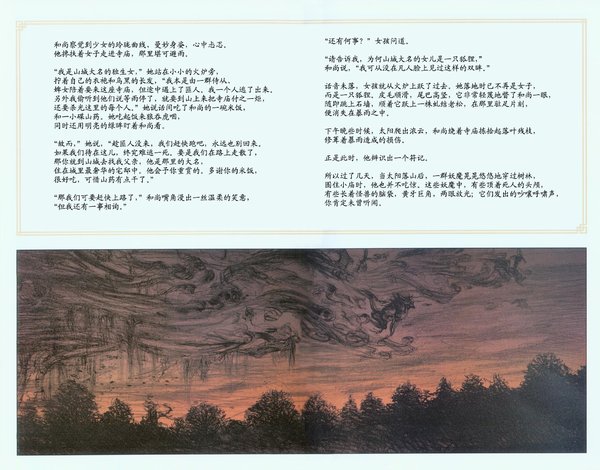 和尚察觉到少女的玲珑曲线、曼妙身姿,心中忐忑。
他搀扶着女子走进寺庙,那里堪可避雨。
“我是山城大名的独生女。”她站在小小的火炉旁,
拧着自己的长袍和乌黑的长发,“我本是由一群侍从、
婢女陪着要来这座寺庙,但途中遇上了匪人,我一个人逃了出来。
另外我偷听到他们说等雨停了,就要到山上来把寺庙付之一炬,
还要杀光这里的每个人。”她说话间吃了和尚的一碗米饭,
和一小碟山药。她吃起饭来狼吞虎咽,
同时还用明亮的绿眸盯着和尚看。
“故而,”她说,“趁匪人没来,我们赶快跑吧,永远也别回来。
如果我们待在这儿,终究难逃一死。要是我们在路上走散了,
那你就到山城去找我父亲,他是那里的大名。
住在城里最奢华的宅邸中。他会予你重赏的。多谢你的米饭,
很好吃,可惜山药有点干了。”
“那我们可要赶快上路了,”和尚嘴角浸出一丝温柔的笑意,
“但我还有一事相询。”
“还有何事?”女孩问道。
“请告诉我,为何山城大名的女儿是一只狐狸,”
和尚说,“我可从没在凡人脸上见过这样的双眸。”
话音未落,女孩就从火炉上跃了过去,她落地时已不再是女子,
而是一只狐狸,皮毛顺滑,尾巴高竖,它非常轻蔑地瞥了和尚一眼,
随即跳上石墙,顺着它跃上一株虬结老松,在那里驻足片刻,
便消失在暴雨之中。
下午晚些时候,太阳爬出浓云,和尚绕着寺庙拣拾起落叶残枝,
修葺着暴雨造成的损伤。
正是此时,他辨识出一个符记。
所以过了几天,当太阳落山后,一群妖魔晃晃悠悠地穿过树林,
围住小庙时,他也并不吃惊。这些妖魔中,有些顶着死人的头颅,
有些长着怪兽的脑袋,黄牙巨角,两眼放光;它们发出的吵嚷呼啸声,
你肯定未曾听闻。